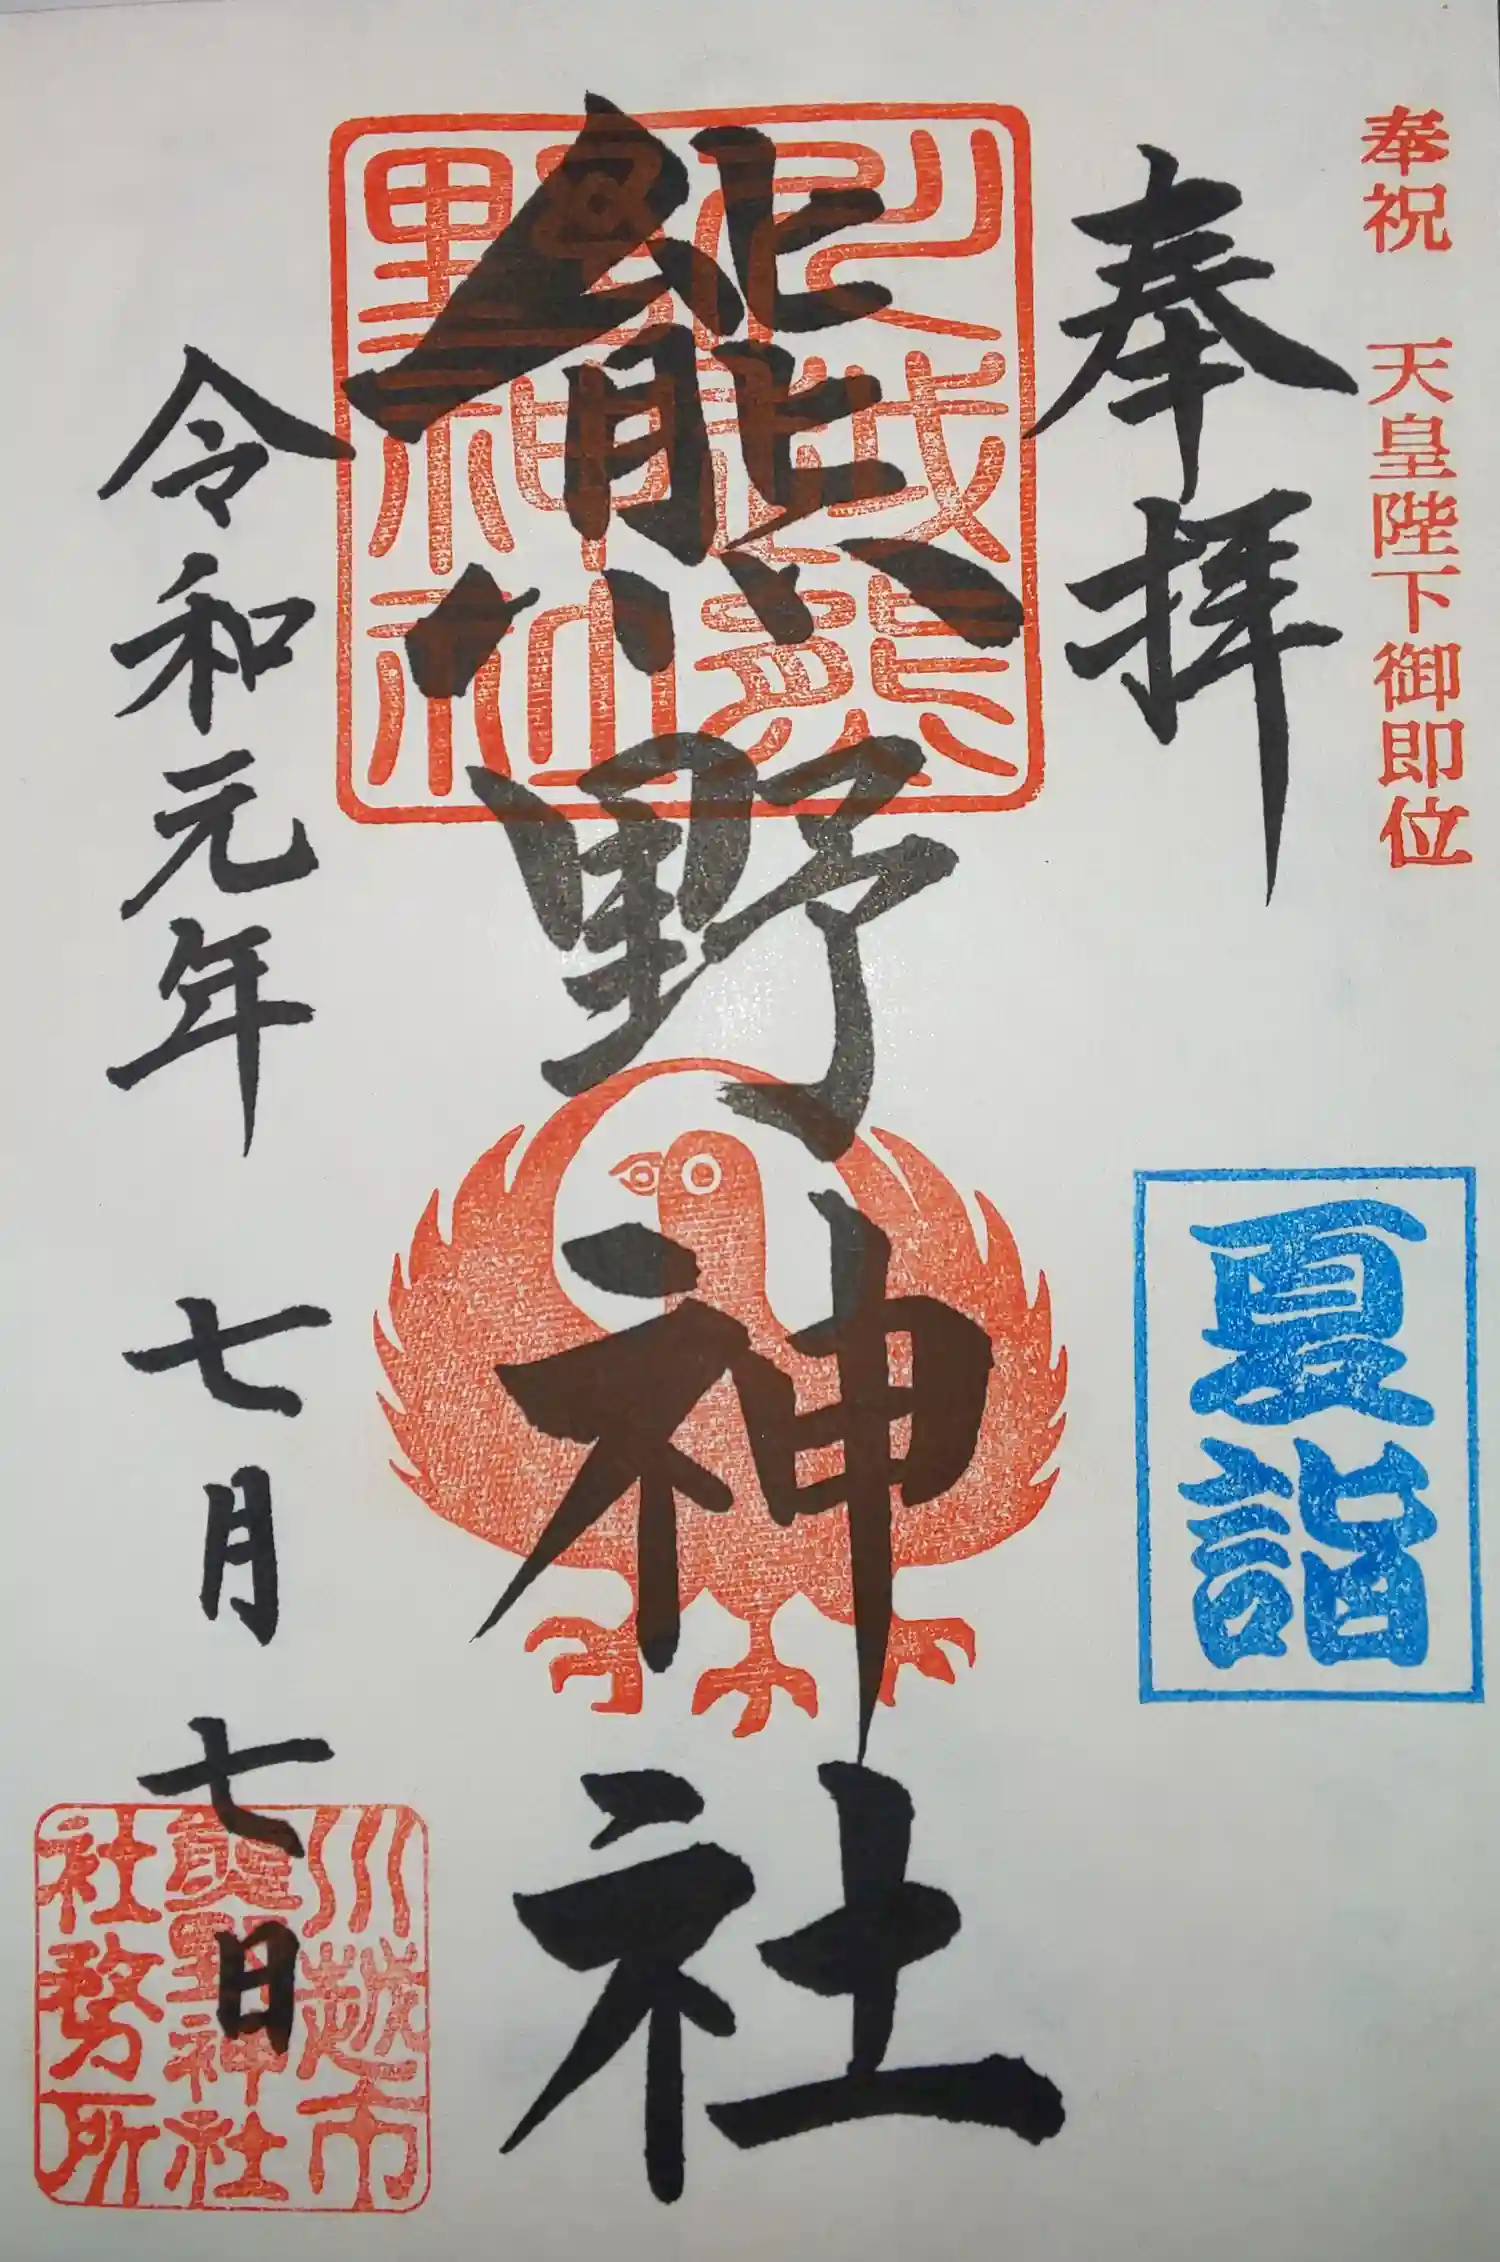 奉祝 天皇陛下御即位
奉拝
夏詣
熊野神社
川越熊
野神社
令和元年 七月 七日
川越市
熊野神社
社務所